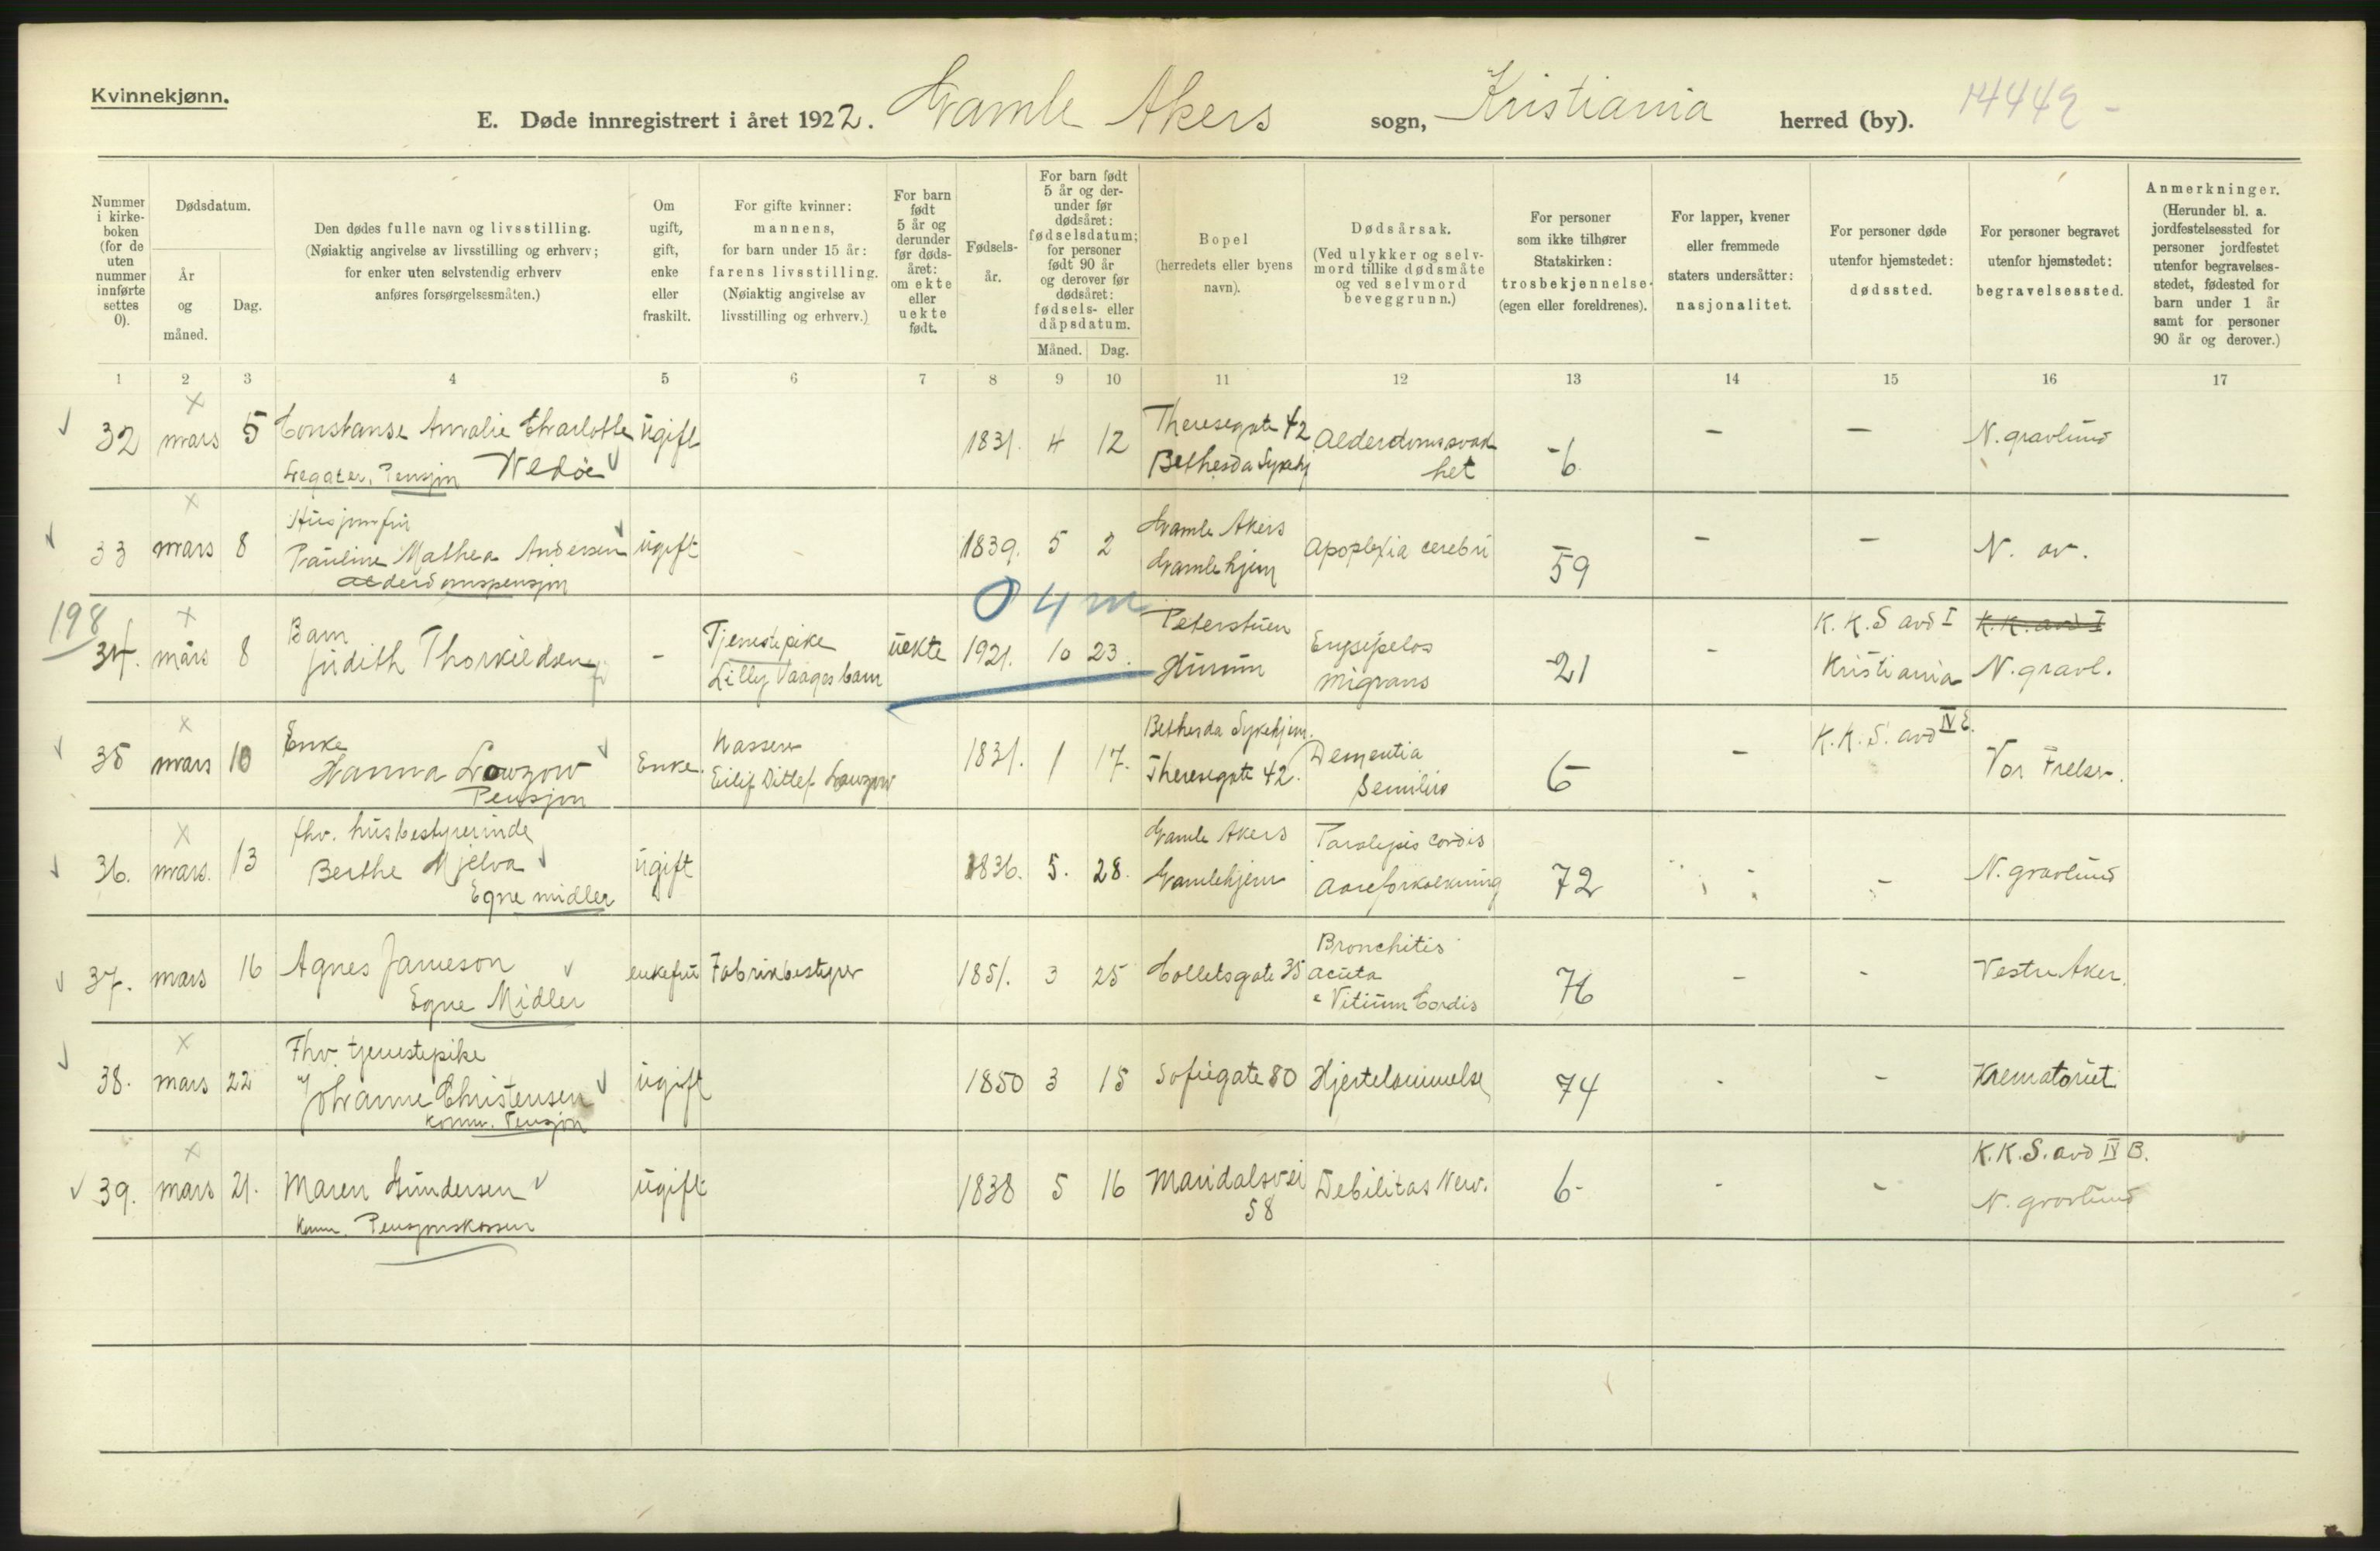 Kvinnekjønn.
E. Døde innregistrert i året 1922. Gamle Akers sogn, Kristiania herred (by). 14442 -
Nummer i kirke-boken (for de uten nummer innførte settes 0).
Dødsdatum.
År og måned.
Dag.
Den dødes fulle navn og livsstilling.
(Nøiaktig angivelse av livsstilling og erhverv;
for enker uten selvstendig erhverv
anføres forsørgelsesmåten.)
Om ugift, gift, enke eller fraskilt.
For gifte kvinner:
mannens,
for barn under 15 år:
farens livsstilling.
(Nøiaktig angivelse av
livsstilling og erhverv.)
For barn født 5 år og derunder før døds-året: om ekte eller uekte født.
Fødsels-år.
For barn født 5 år og der-under før dødsåret: fødselsdatum; for personer født 90 år og derover før dødsåret: fødsels- eller dåpsdatum.
Måned. Dag.
Bopel
(herredets eller byens
navn).
Dødsårsak.
(Ved ulykker og selv-
mord tillike dødsmåte
og ved selvmord
beveggrunn.)
For personer
som ikke tilhører
Statskirken:
trosbekjennelse
(egen eller foreldrenes).
For lapper, kvener
eller fremmede
staters undersåtter:
nasjonalitet.
For personer døde
utenfor hjemstedet:
dødssted.
For personer begravet
utenfor hjemstedet:
begravelsessted.
Anmerkninger.
(Herunder bl. a.
jordfestelsessted for
personer jordfestet
utenfor begravelses-
stedet, fødested for
barn under 1 år
samt for personer
90 år og derover.)
1 2 3 4 5 6 7 8 9 10 11 12 13 14 15 16 17
32 mars 5 Constanse Amalie Charlotte ugift 1831. 4 12 Theresegate 42 Alderdomssvak - - N. gravlund
Legater, Pensjon Wedøe Bethesda Sykehj het -6
Husjomfru
33 mars 8 Pauline Mathea Andersen ugift 1839. 5 2 Gamle Akers Apoplexia cerebri - - N. av.
alderdomspensjon Gamlehjem 59
198 0 4 m
34. mars 8 Barn - Tjenestepike uekte 1921. 10 23. Peterstuen Erysipelos - K.K.S avd I K.K. avd I
Judith Thorkildsen Lilly Vaages barn Hurum migrans 21 Kristiania N. gravl.
35 mars 10 Enke Enke. Kasserer 1831. 1 17. Bethesda Sykehjem. Dementia - K.K.S. avd IV E. Vor Frelser.
Hanna Lowzow Eilif Ditlef Lowzow Theresegate 42. Senilis 6
Pensjon
36. mars. 13 fhv. husbestyrerinde ugift 1836. 5. 28. Gamle Akers Paralysis cordis - N. gravlund
Berthe Mjelva Gamlehjem Aareforkalkning 72
Egne midler
37. mars 16 Agnes Jameson enkefru Fabrikbestyrer 1851. 3 25 Colletsgate 35 Bronchitis - - Vestre Aker.
Egne Midler acuta 76
Vitium Cordis
38. mars 22 Fhv. tjenestepike ugift 1850 3 15 Sofiegate 80 Hjertelammelse 74 - - Krematoriet
Johanne Christensen
komm. Pensjon
39. mars 21. Maren Gundersen ugift 1838 5 16 Maridalsvei Debilitas Nerv. 6- - - K.K.S. avd IV B.
Komm. Pensjonskassen 58 N. gravlund